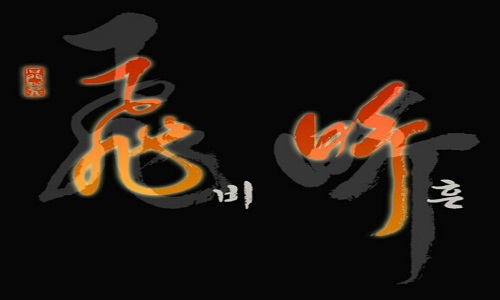 飛 비 昕 흔